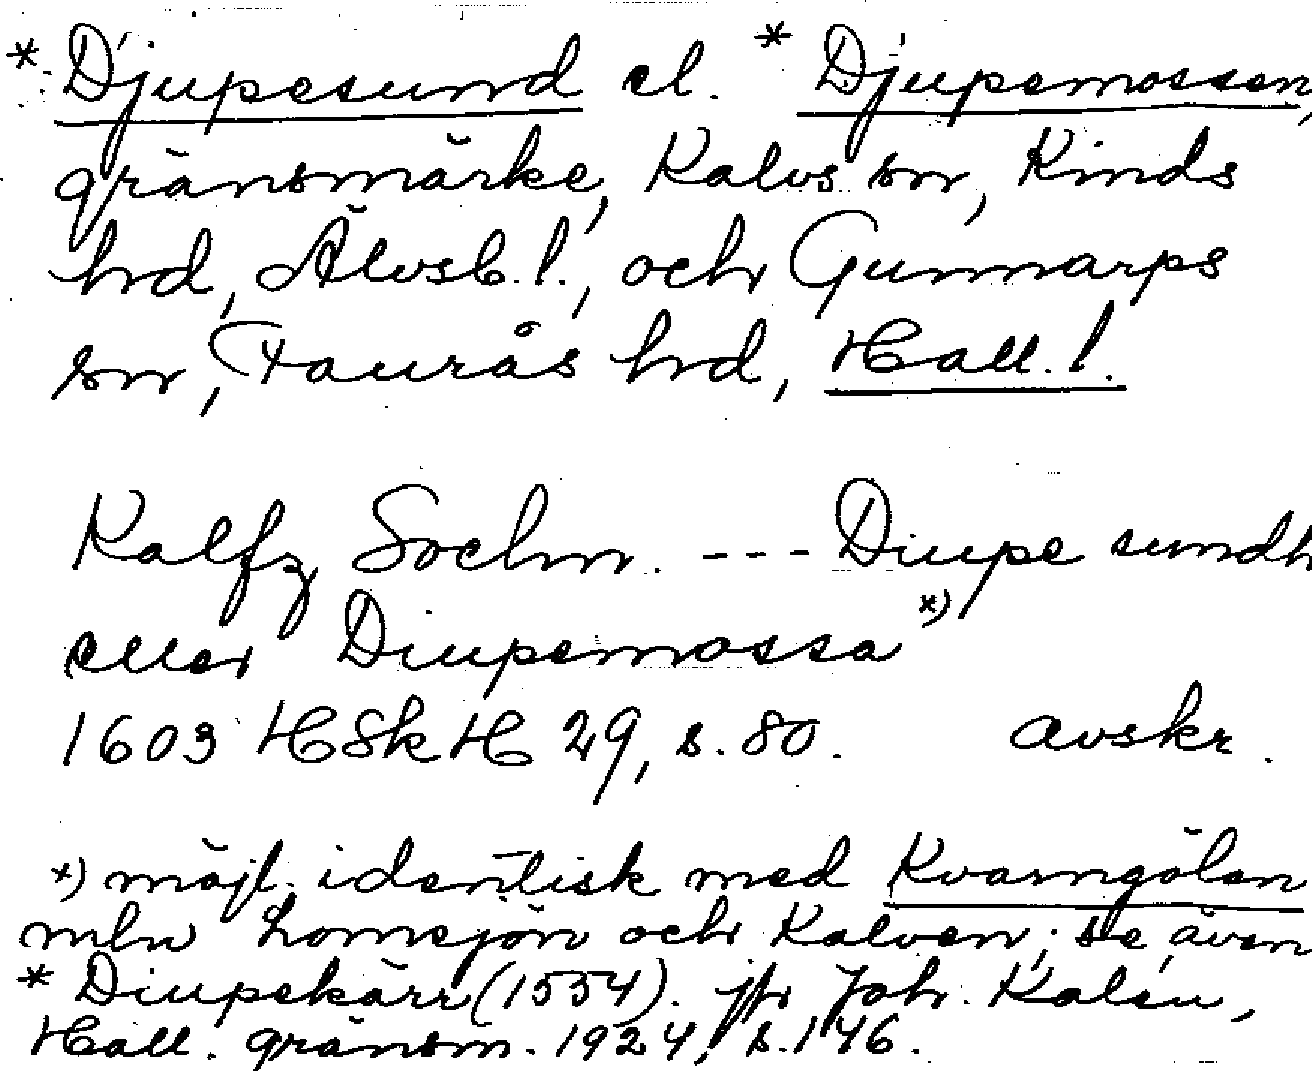 * Djupesund el. * Djupemossen,
gränsmärke, Kalvs sn, Kinds
hd, Älvsb. l., och Gunnarps
sn, Faurås hd, Hall. l.
Kalfz Sochn. --- Diupe sundh
eller Diupemossa x)
1603 HSkH 29, s. 80. avskr.
x) möjl. identisk med Kvarngölen
mln Lomsjön och Kalven; se även
* Diupekärr (1554). jfr Joh. Kalén,
Hall. gränsm. 1924, s. 146.